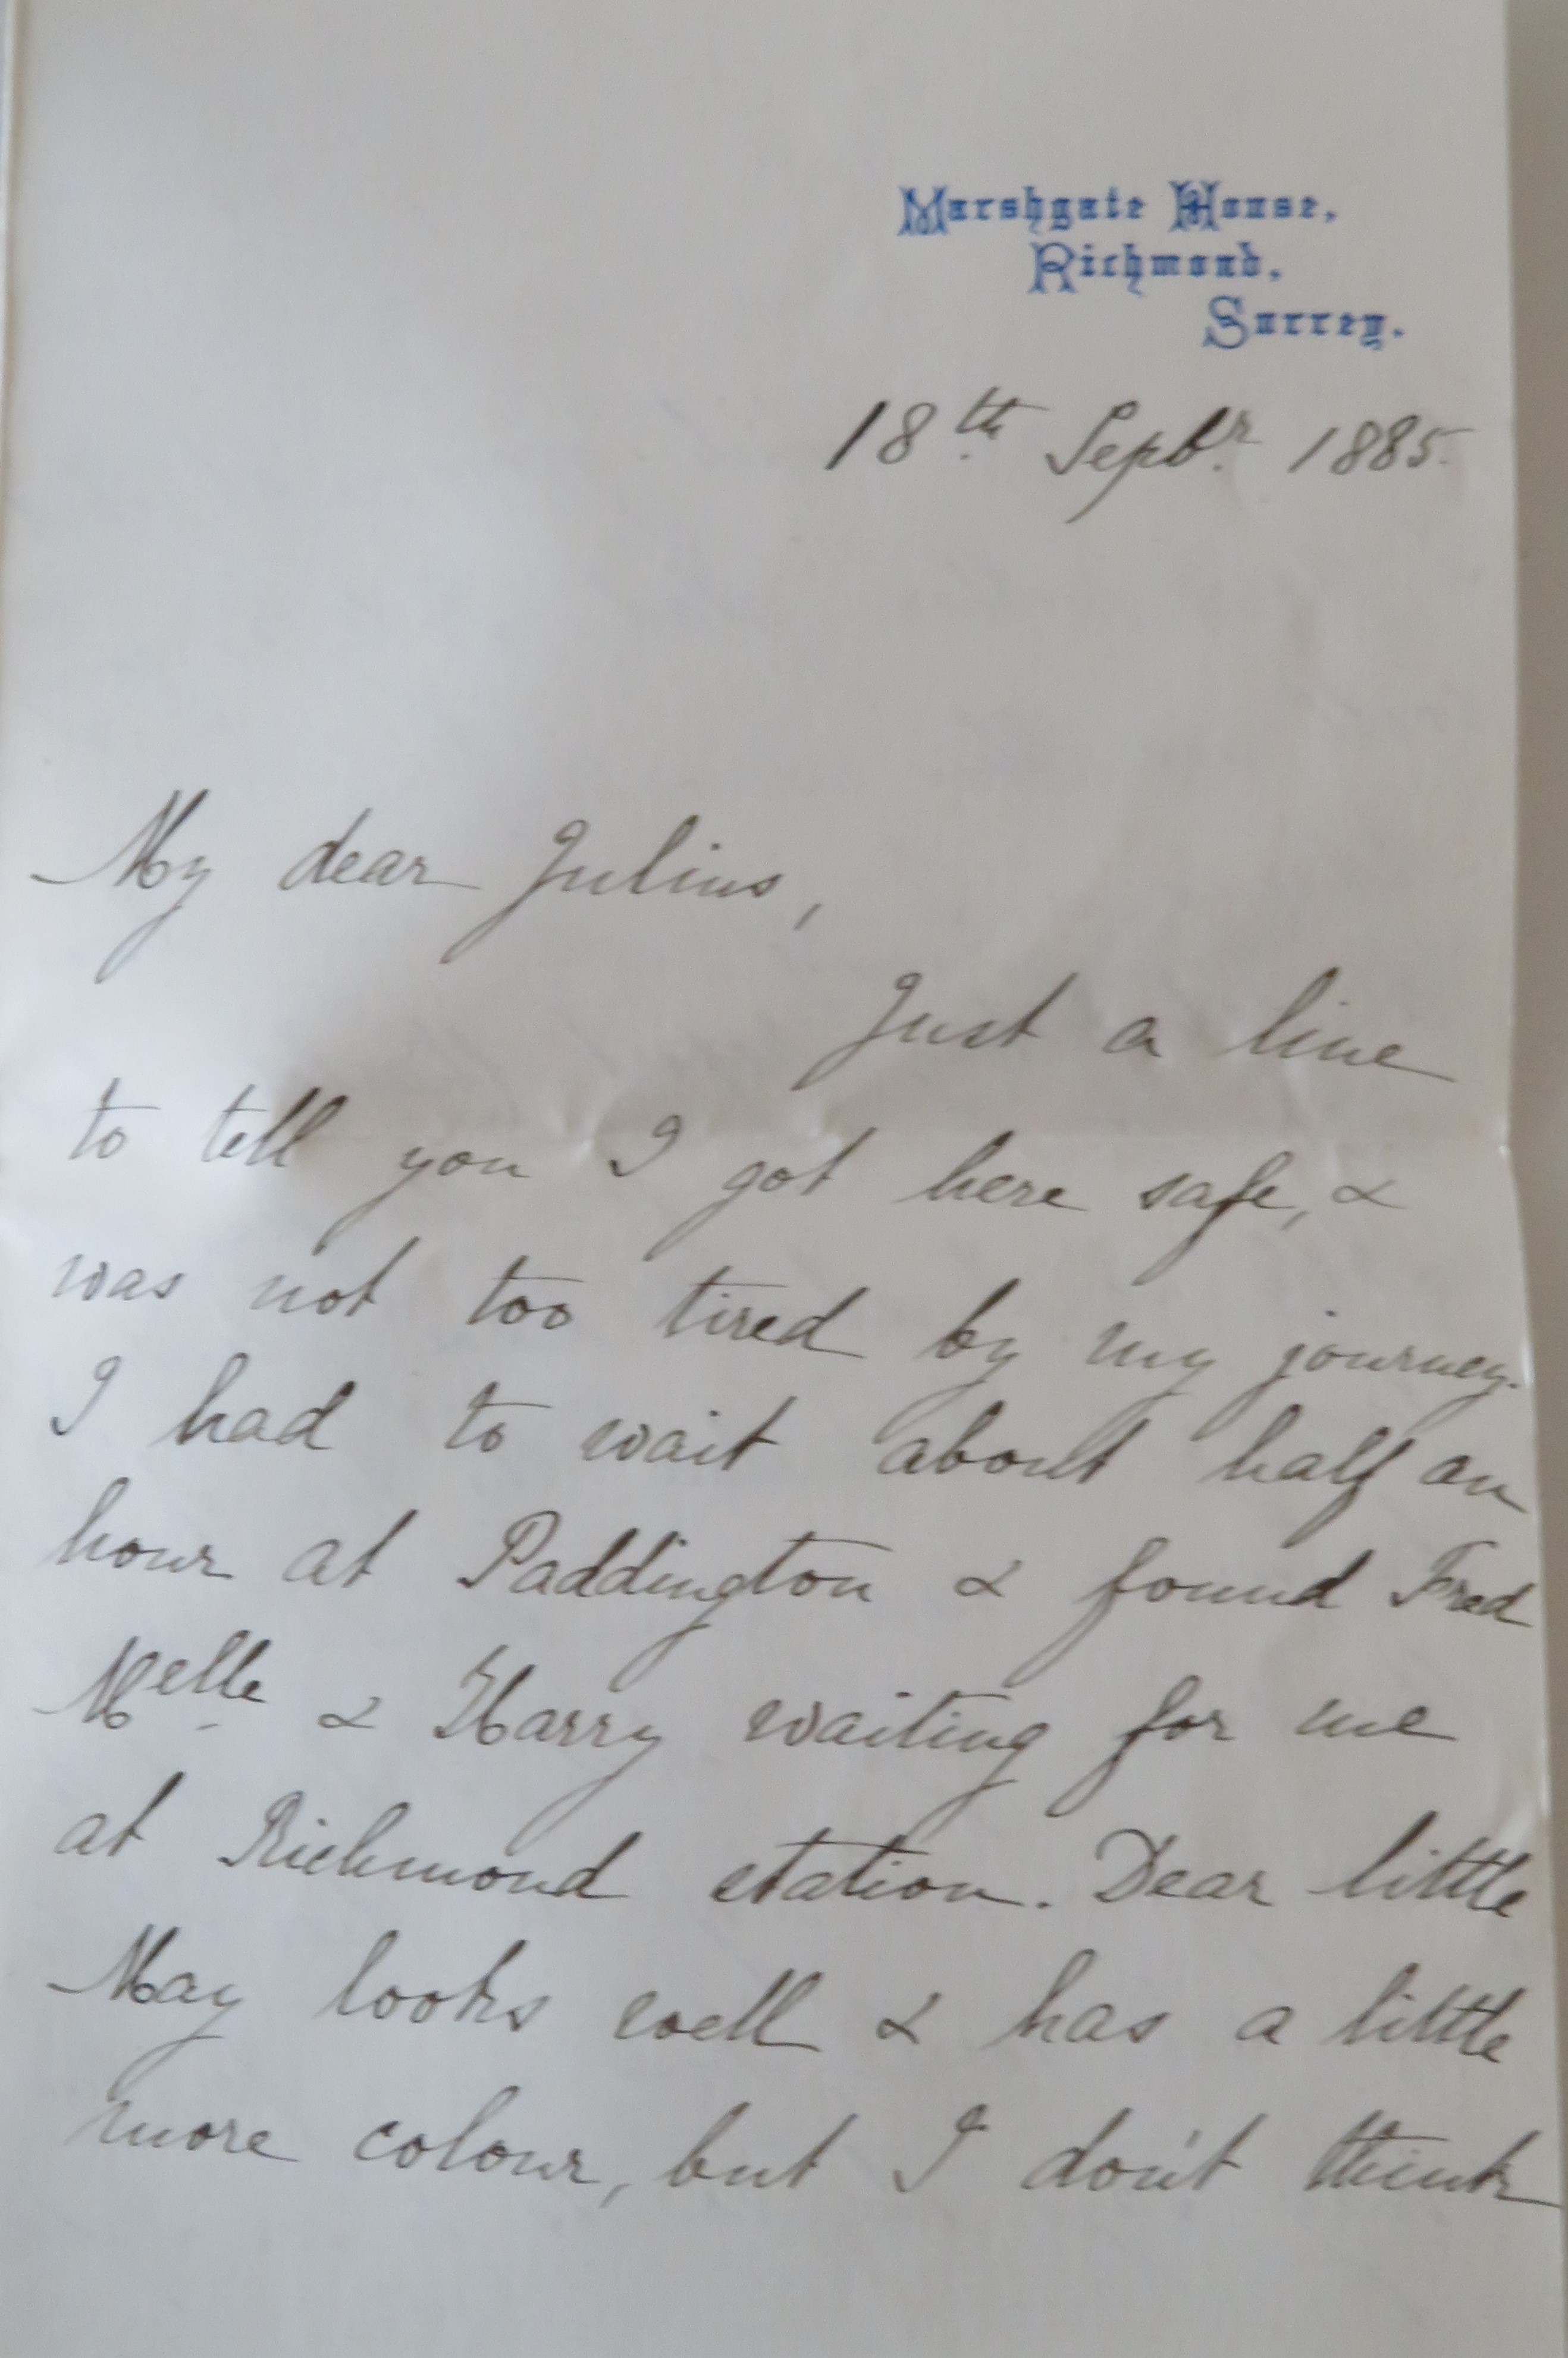 Marshgate House,
Richmond,
Surrey.
18th Septr. 1885.
My dear Julius,
Just a line
to tell you I got here safe, &
was not too tired by my journey.
I had to wait about half an
hour at Paddington & found Fred
Melle & Harry waiting for me
at Richmond station. Dear little
May looks well & has a little
more colour, but I don't think